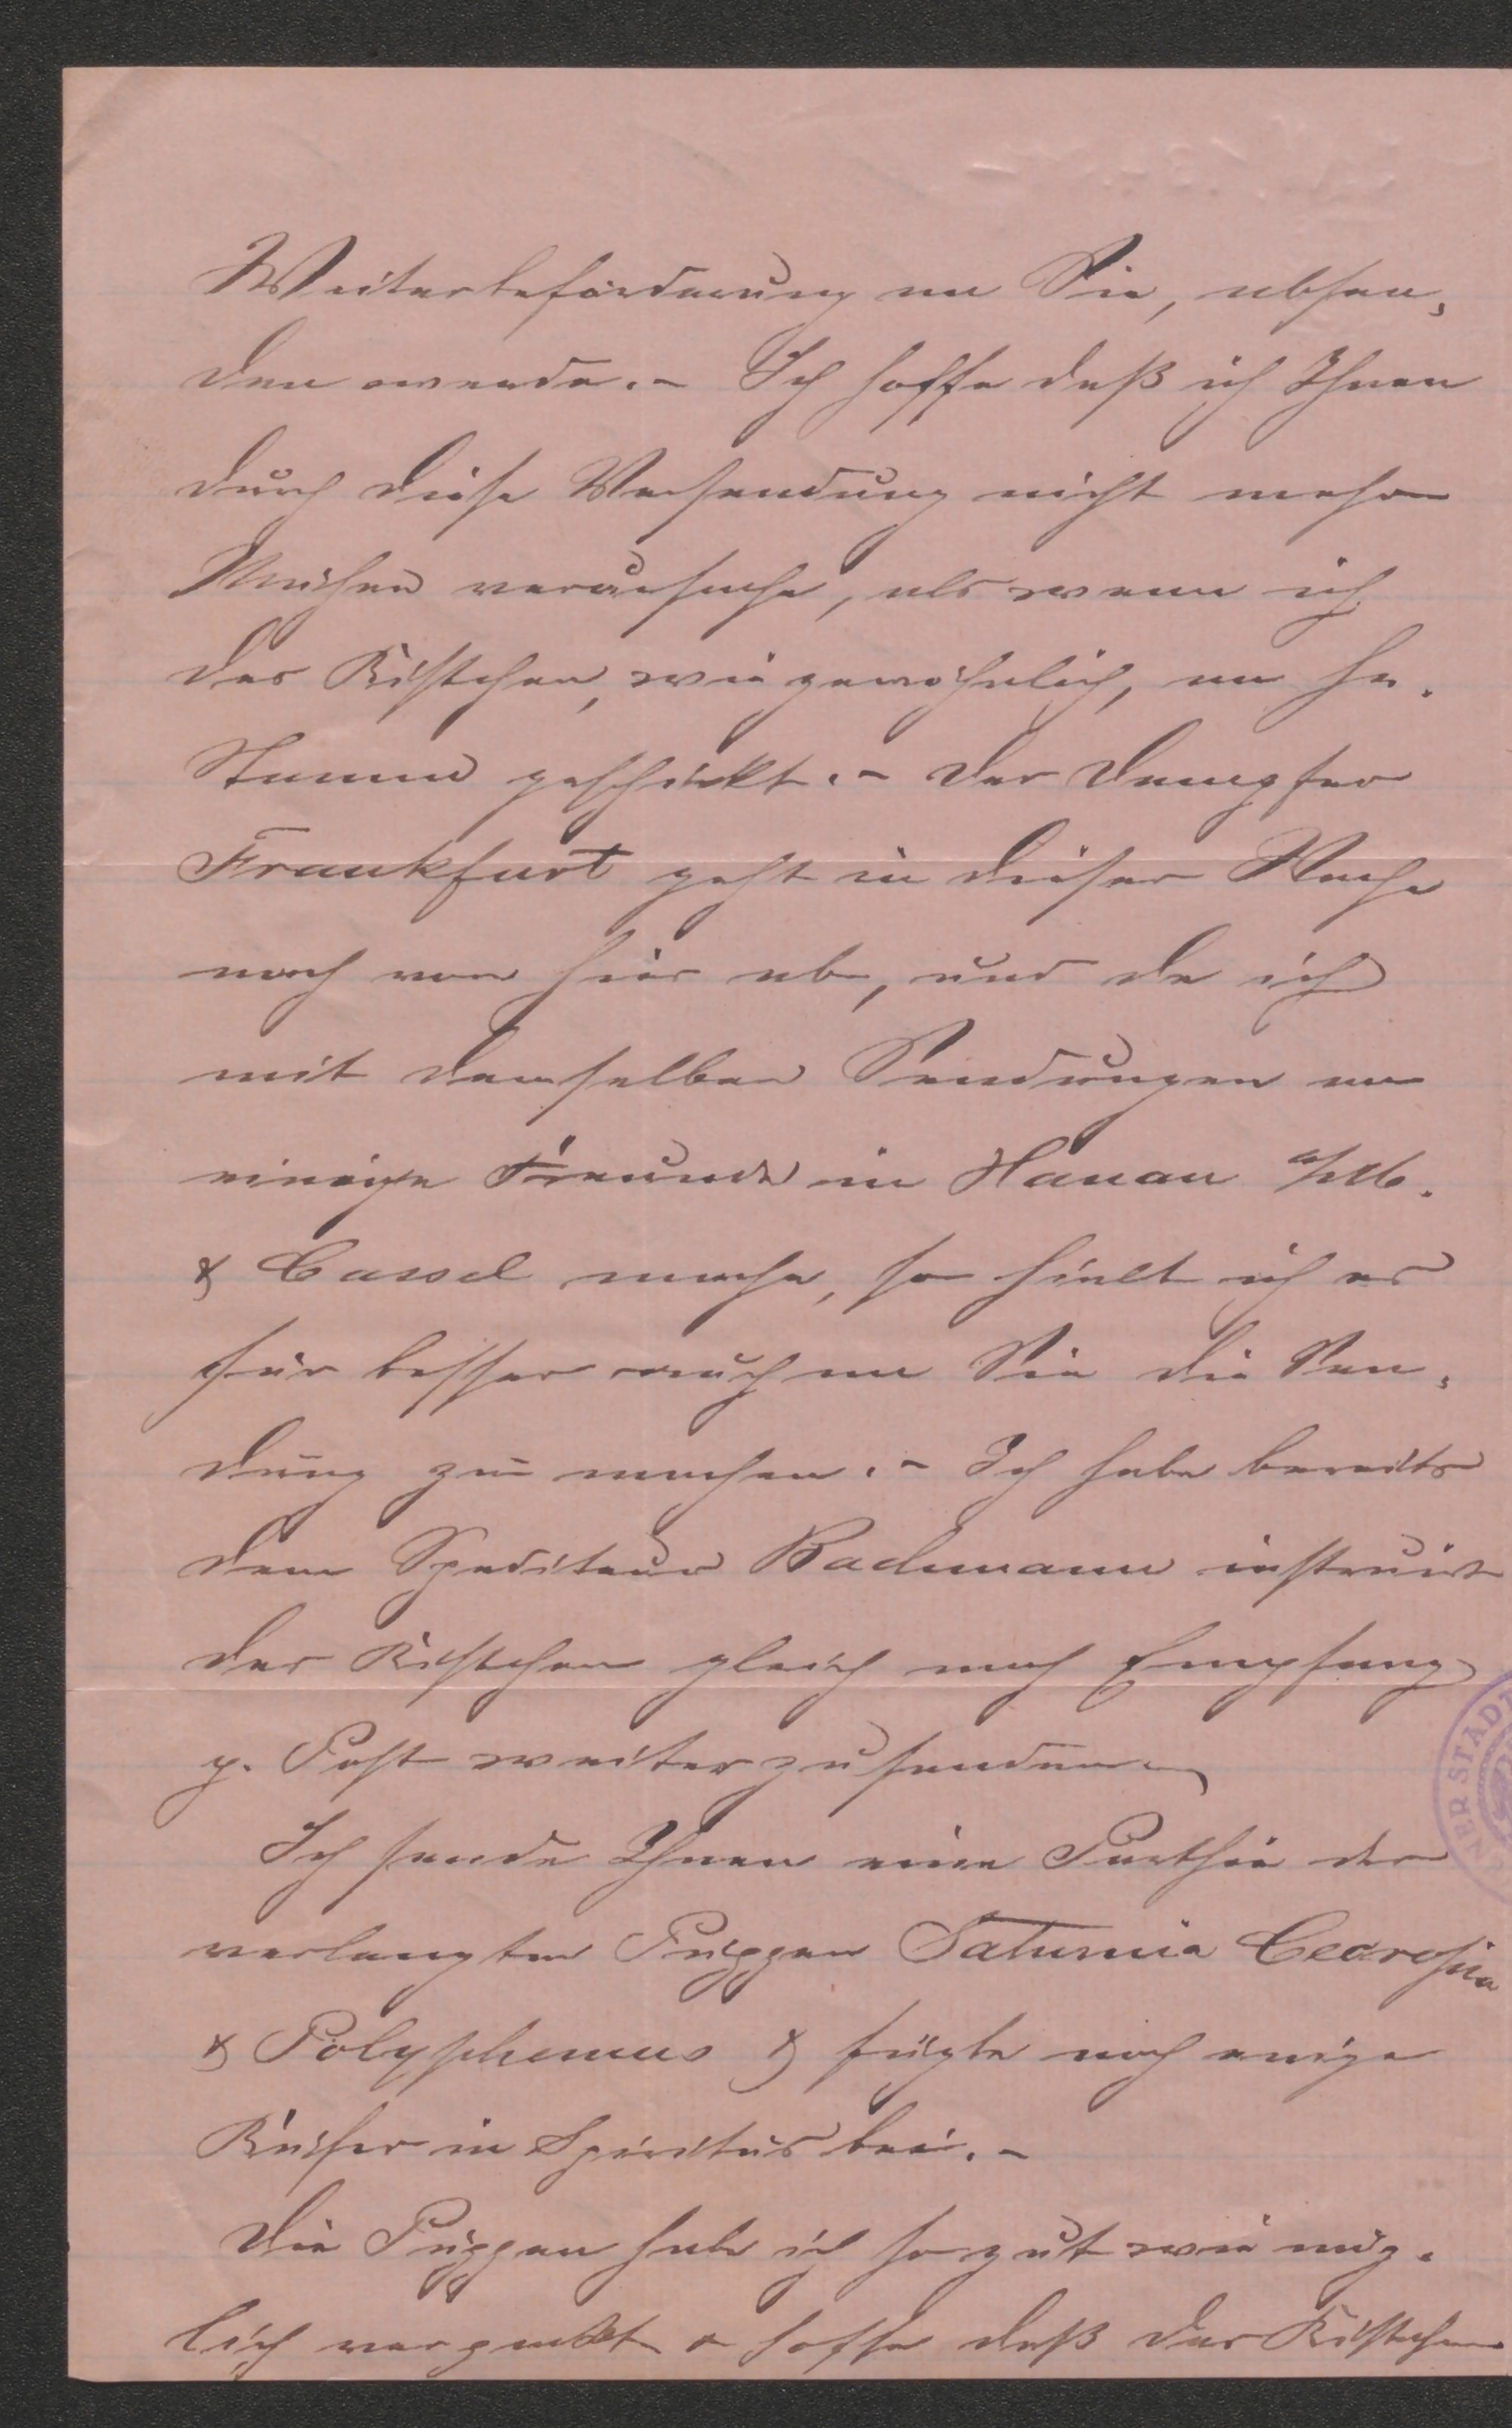 Weiterbeförderung an Sie, absen,
den werde.- Ich hoffe daß ich Ihnen
durch diese Versendung nicht mehr
Mühen verursache, als wenn ich
das Kistchen, wie gewöhnlich, an Hr.
Stamm geschickt.- Der Dampfer
Frankfurt geht in dieser Woche
noch von hier ab, und da ich
mit demselben Sendungen an
einige Freunde in Hanau a/M.
& Cassel mache, so hielt ich es
für besser auch an Sie die Sen,
dung zu machen.- Ich habe bereits
dem Spediteur Bachmann instruirt
das Kistchen gleich nach Empfang
p. Post weiterzusenden
Ich sende Ihnen eine Parthie der
verlangten Puppen Saturnia Cecropia
& Polyphemus & fügte noch einige
Käfer in Spiritus bei.-
Die Puppen habe ich so gut wie mög.
lich verpackt & hoffe daß das Kistchen
NER STADT